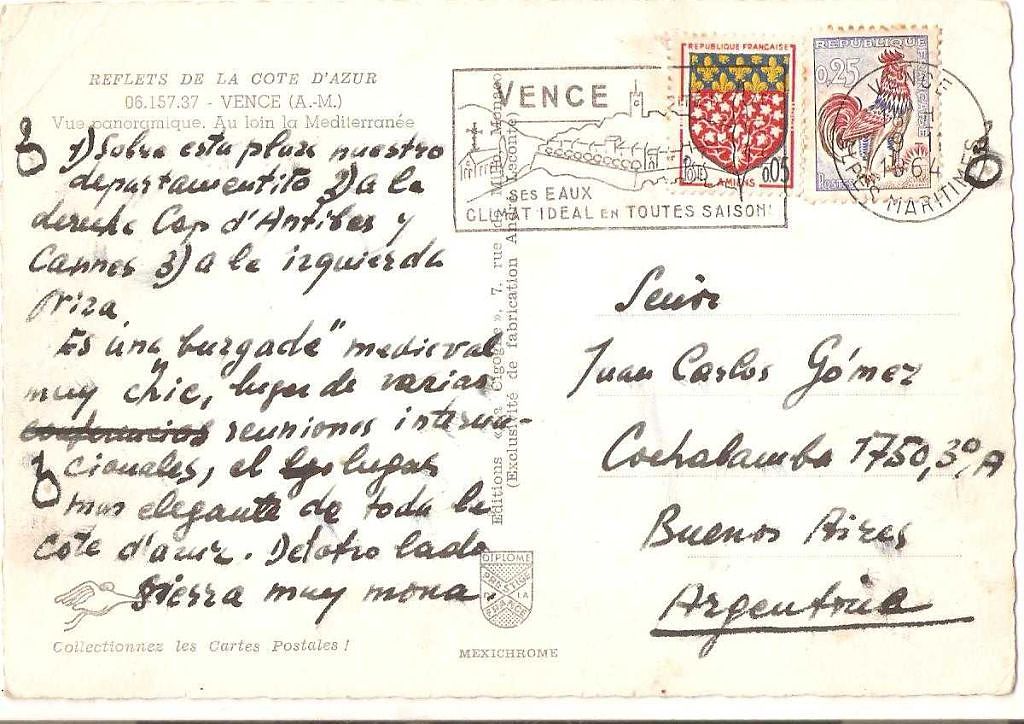 REFLETS DE LA COTE D'AZUR
06.157.37 - VENCE (A.-M.)
Vue panoramique. Au loin la Mediterranée
1) Sobre esta plaza nuestro
departamentito 2) a la
derecha Cap d'Antibes y
Cannes 3) a la izquierda
Niza
Es una "burgade" medieval
muy chic, lugar de varias
conferencias reuniones interna-
cionales, el lugar
mas elegante de toda la
Cote d'azur. Del otro lado
sierra muy mona.
Collectionnez les Cartes Postales !
Editions « La Cigogne », 7, rue de Millo, Monaco
(Exclusivité de fabrication André Leconte)
DIPLOME
PRESTIGE
FRANCE
MEXICHROME
VENCE
SES EAUX
CLIMAT IDEAL EN TOUTES SAISONS
REPUBLIQUE FRANÇAISE
POSTES
AMIENS
0,05
REPUBLIQUE
0,25
VENCE
ALPES MARITIMES
Señor
Juan Carlos Gómez
Cochabamba 1750, 3º, A
Buenos Aires
Argentina